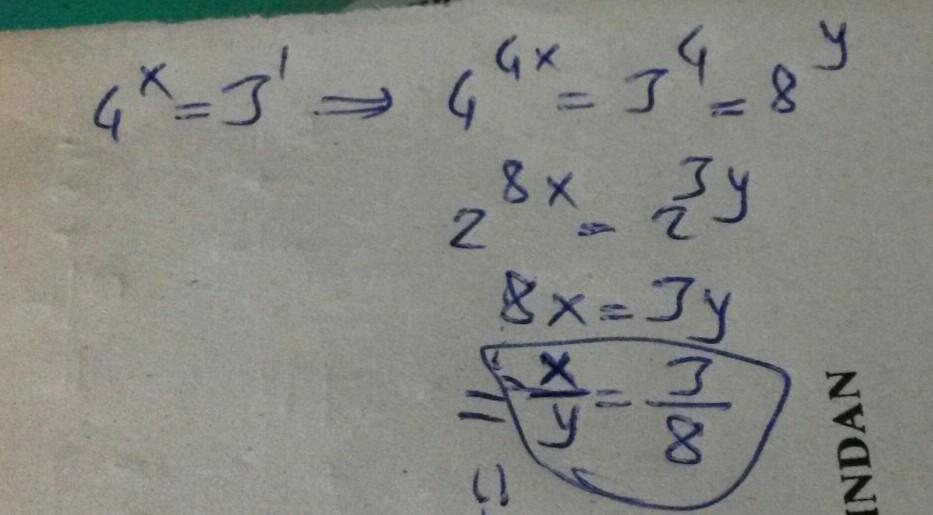 4^x = 3^1 ⇒ 4^{4x} = 3^4 = 8^y
2^{8x} = 2^{3y}
8x = 3y
= x/y = 3/8
INDAN